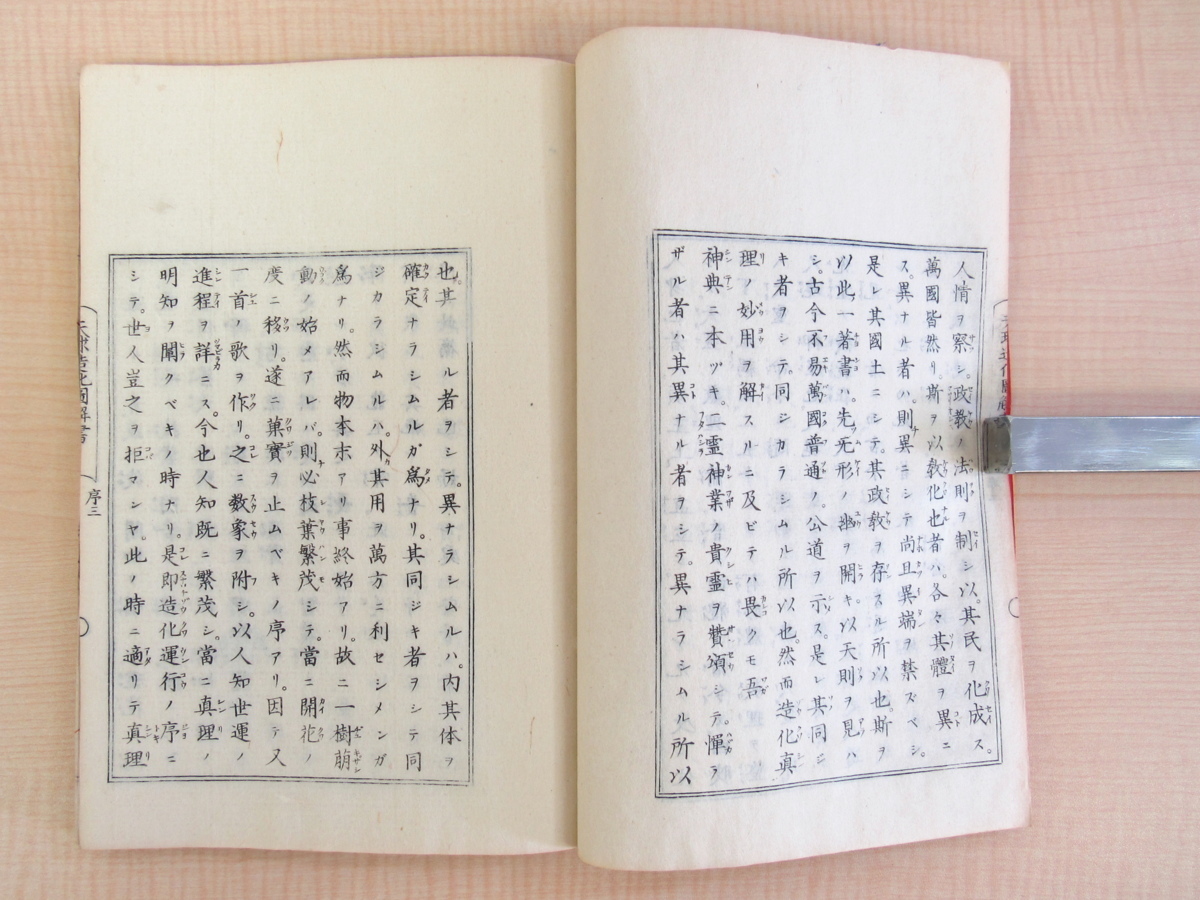 人情ヲ察シ。政教ノ法則ヲ制シ以。其民ヲ化成ス。
萬國皆然リ。斯ヲ以敎化也者ハ。各々其體ヲ異ニ
ス。異ナル者ハ。則異ニシテ尚且異端ヲ禁ズベシ。
是レ其國土ニシテ。其政敎ヲ存スル所以也。斯ヲ
以此一著書ハ。先旡形ノ幽ヲ開キ。以天則ヲ見ハ
シ。古今不易萬國普通ノ。公道ヲ示ス。是レ其同ジ
キ者ヲシテ。同ジカラシムル所以也。然而造化真
理ノ妙用ヲ解スルニ及ビテハ畏クモ吾
神典ニ本ヅキ。二霊神業ノ貴霊ヲ賛頌シテ。憚ラ
ザル者ハ其異ナル者ヲシテ。異ナラシムル所以
也。其ル者ヲシテ。異ナラシムルハ。内其体ヲ
確定ナラシムルガ爲ナリ。其同ジキ者ヲシテ同
ジカラシムルハ。外其用ヲ萬方ニ利セシメンガ
爲ナリ。然而物本末アリ事終始アリ。故ニ一樹萠
動ノ始メアレバ。則必枝葉繁茂シテ。當ニ開花ノ
度ニ移リ。遂ニ菓實ヲ止ムベキノ序アリ。因テ又
一首ノ歌ヲ作リ。之ニ数象ヲ附シ。以人知世運ノ
進程ヲ詳ニス。今也人知既ニ繁茂シ。當ニ真理ノ
明知ヲ闡クベキノ時ナリ。是即造化運行ノ序ニ
シテ。世人豈之ヲ拒マンヤ。此ノ時ニ適リテ真理
天球造化圖解書
序三